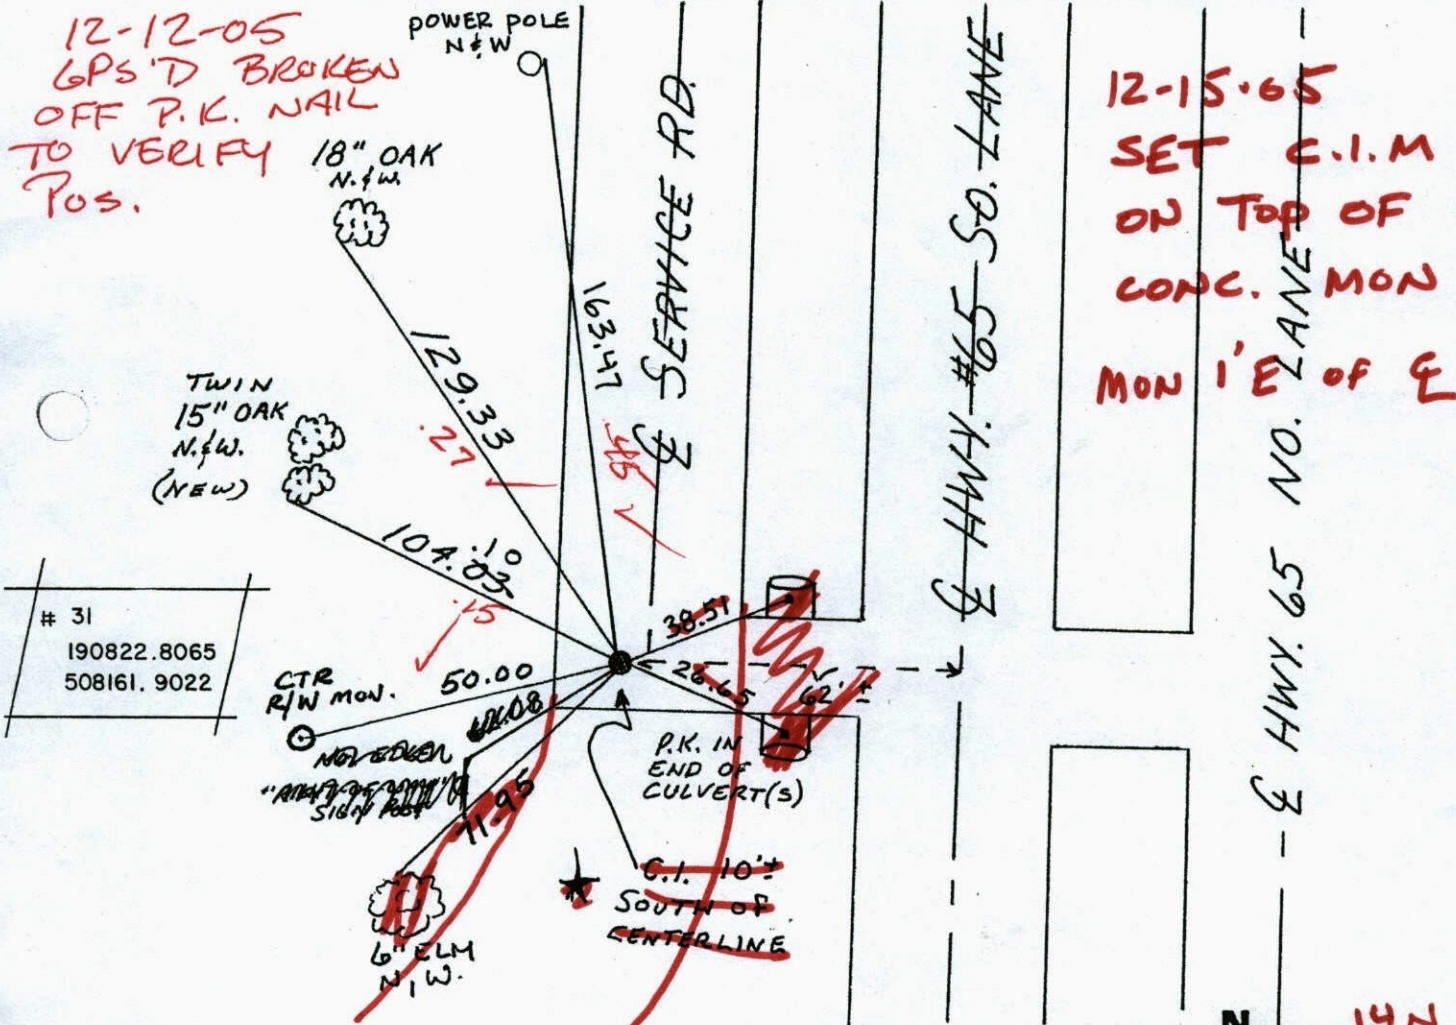 12-12-05
GPS'D BROKEN
OFF P.K. NAIL
TO VERIFY
POS.
POWER POLE
N & W
18" OAK
N. & W.
TWIN
15" OAK
N. & W.
(NEW)
163.47
.45
129.33
.27
104.03
.10
.15
℄ SERVICE RD.
℄ HWY. #65 SO. LANE
℄ HWY. 65 NO. LANE
12-15-05
SET C.I.M
ON TOP OF
CONC. MON
MON 1'E OF ℄
# 31
190822.8065
508161.9022
CTR
R/W MON.
50.00
38.51
26.65
62' ±
SIGN POST
71.95
6" ELM
N, W.
P.K. IN
END OF
CULVERT(S)
C.I. 10'±
SOUTH OF
CENTERLINE
N
14N